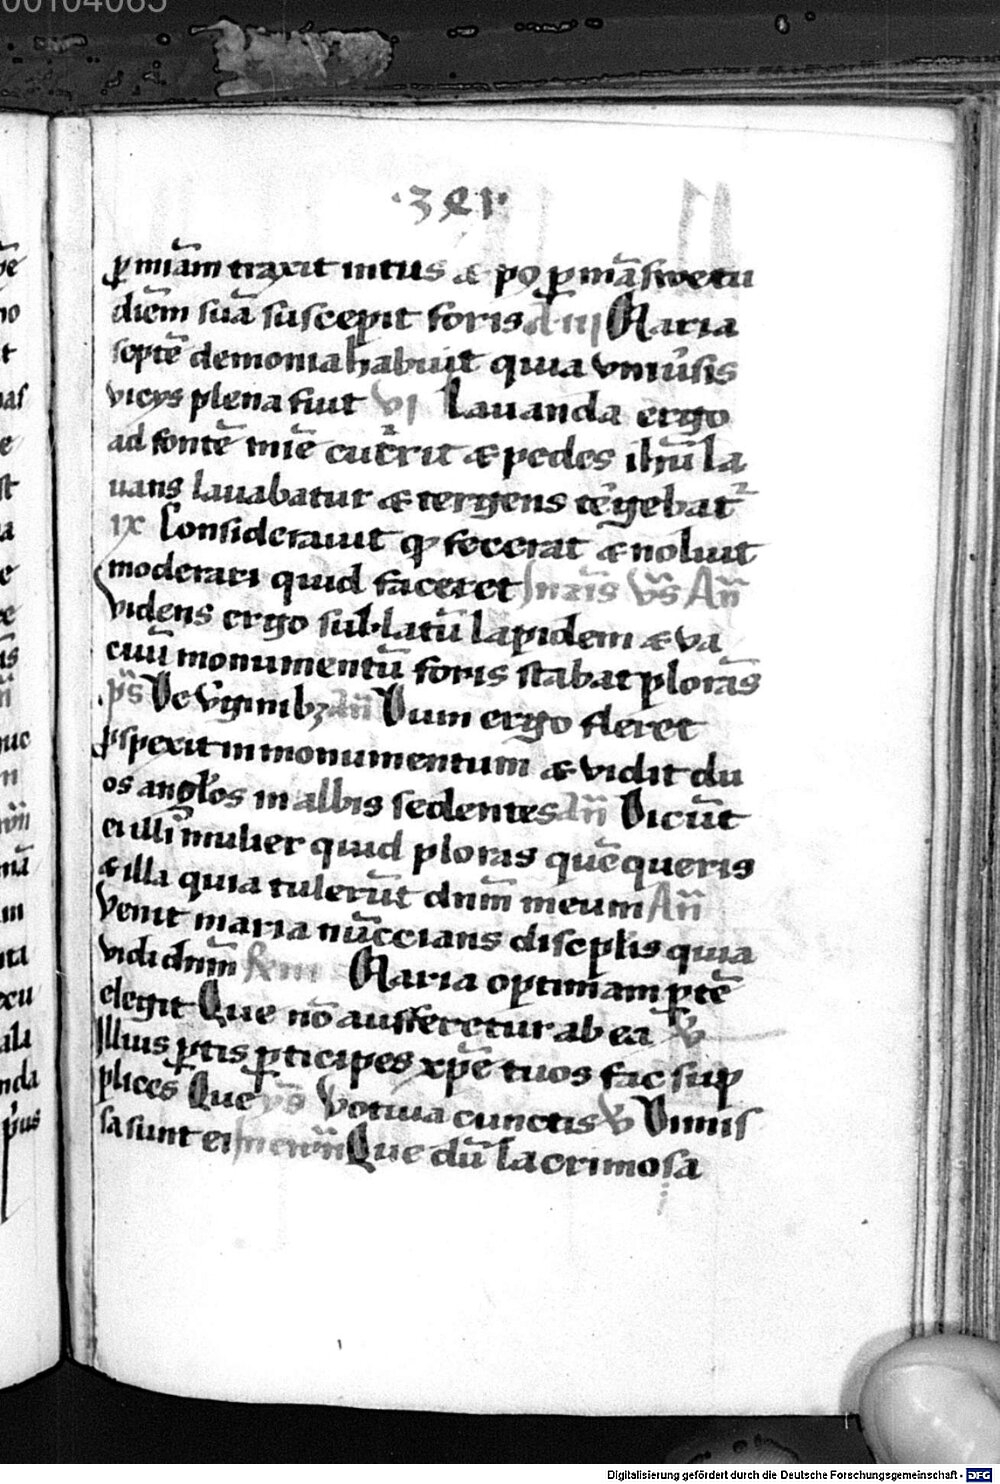 00104065
·3 e 1·
ꝑ miãm traxit intus & pꝯ ꝑ mãswetu
diẽm suã suscepit foris a iiij Maria
septẽ demonia habuit quia vniũsis
vicijs plena fuit vi Lauanda ergo
ad fontẽ mie cucrit & pedes ihũ la
uans lauabatur & tergens tergebat
ix Considerauit qͥ fecerat & noluit
moderari quid faceret In Vs Añ
Videns ergo sublatũ lapidem & va
cuũ monumentũ foris stabat plorãs
ps De Vginibꝫ añ Dum ergo fleret
ꝓspexit in monumentum & vidit du
os anglos in albis sedentes añ Dicũt
ei illi mulier quid ploras quẽ queris
& illa quia tulerũt dñm meum Añ
Venit maria nũccians discplis quia
vidi dñm Maria optimam ꝑtẽ
elegit Que nõ aufferetur ab ea V
Illius ꝑtis ꝑticipes xp̃e tuos fac sup
plices Que ys Votiua cunctis V Dimis
sa sunt ei Que dũ lacrimosa
Digitalisierung gefördert durch die Deutsche Forschungsgemeinschaft - DFG